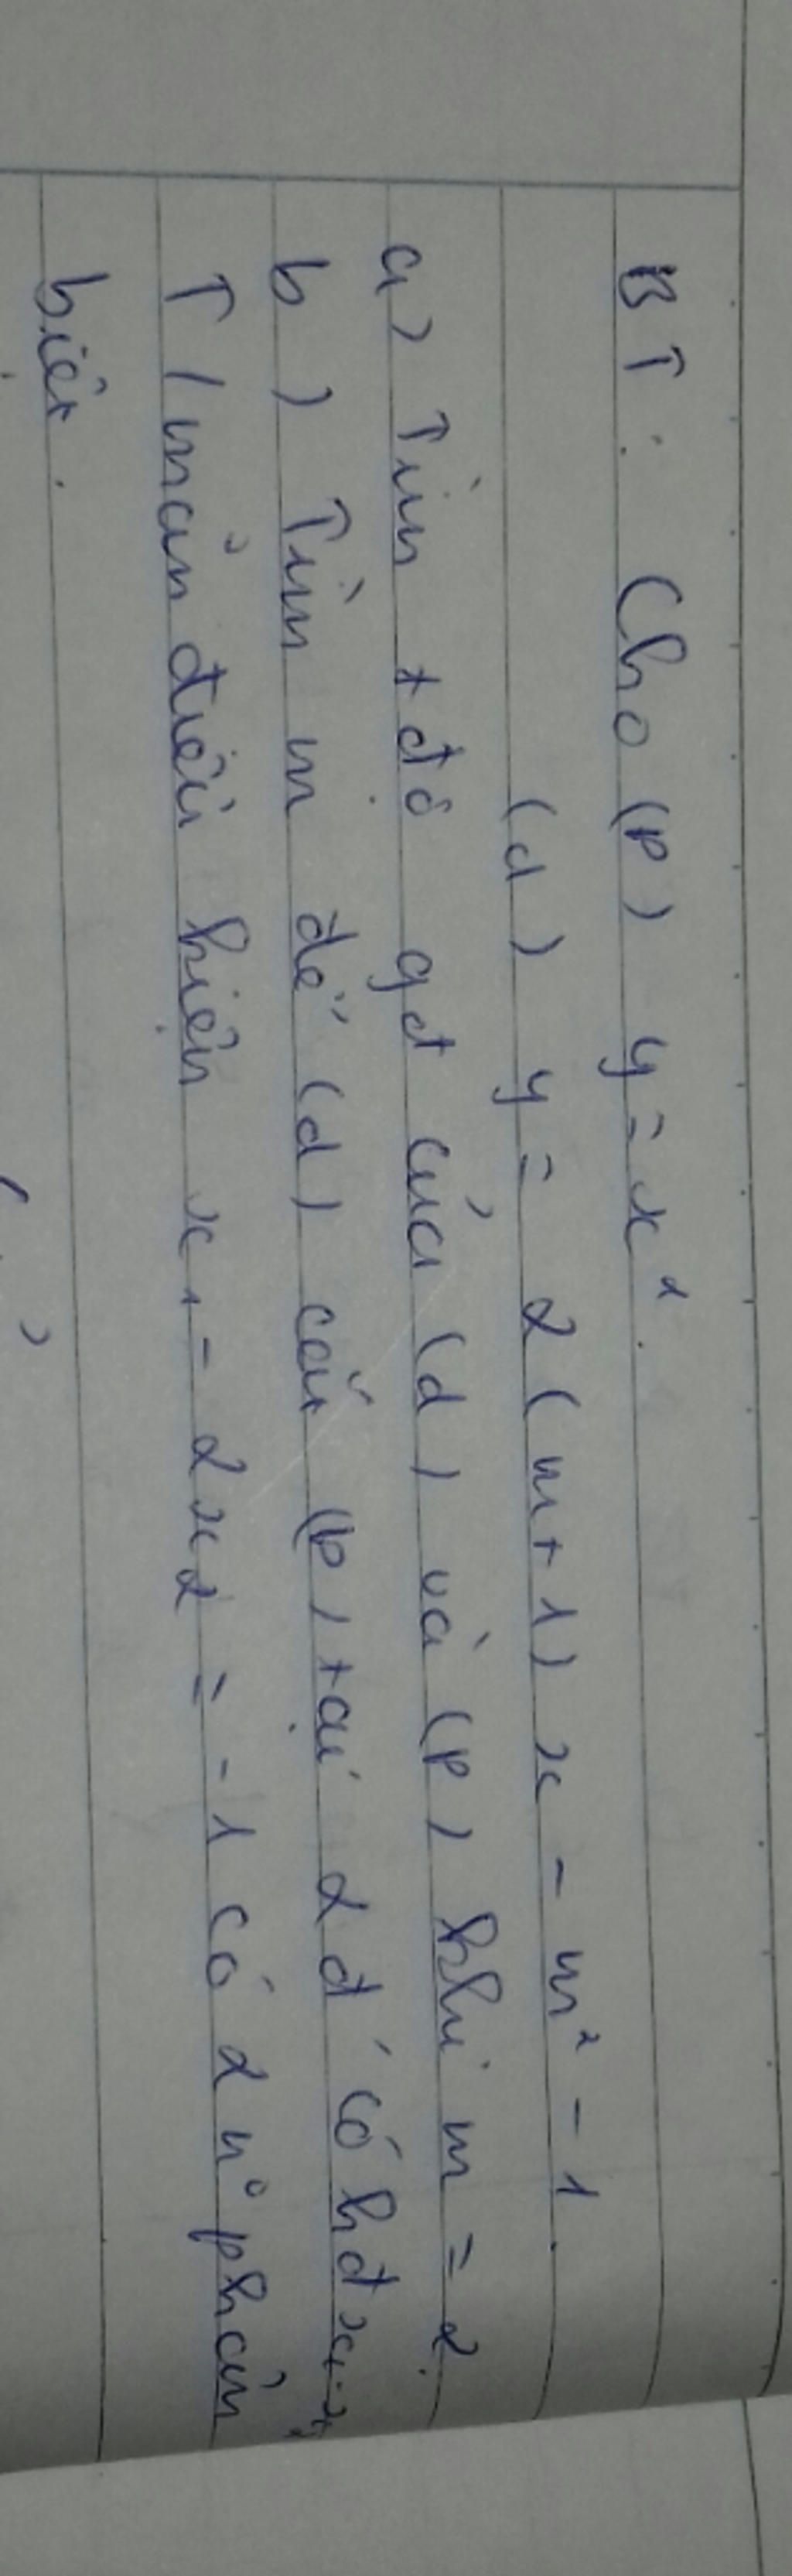 BT : Cho (P) y = x².
(d) y = 2(m+1)x - m² - 1.
a) Tìm t độ gđ của (d) và (P) khi m = 2.
b) Tìm m để (d) cắt (P) tại 2 đ có hđ x₁, x₂
T/mãn điều kiện x₁ - 2x₂ = -1 có 2 n⁰ phân
biệt.